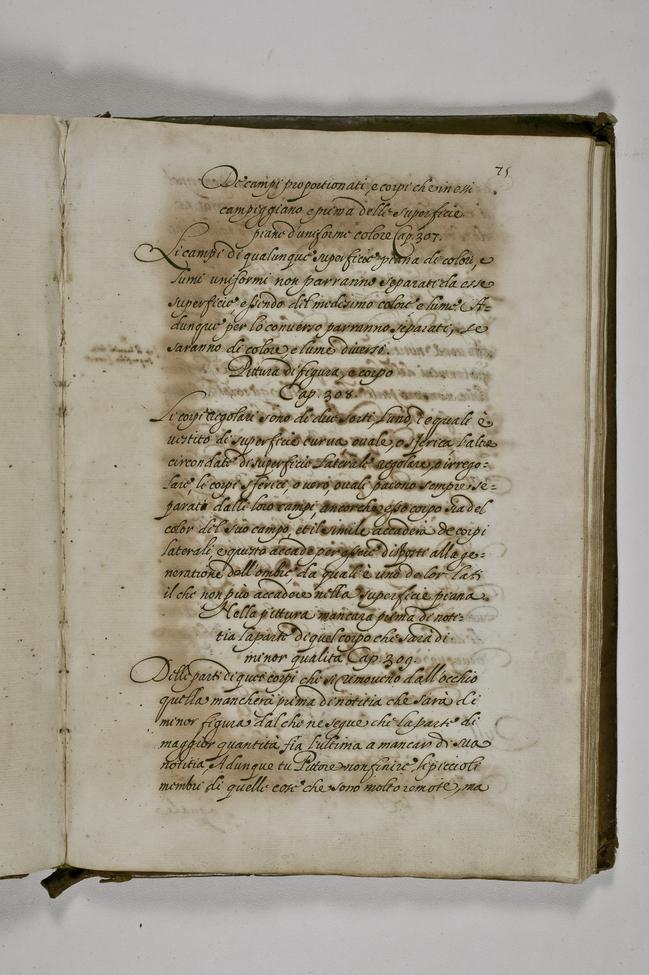 75
De campi proportionati, e corpi che in essi
campeggiano e prima delle superficie
piane d'uniforme colore Cap. 307.
Li campi di qualunque superficie piana de colori, e
lumi uniformi non parranno separati da esse
superficie essendo del medesimo colore e lume. A=
dunque per lo converso parranno separati, se
saranno di colore e lume diversi.
Pittura di figura, e corpo
Cap. 308.
Li corpi regolari sono di due sorti, l'uno, i quali è
vestito di superficie curva ovale, o sferica l'altro
circondato di superficie laterale regolare, o irrego=
lare, le corpi sferici, o vero, ovali paiono sempre se=
parati dalli loro campi, ancorche esso corpo sia del
color del suo campo, et il simile accaderà de corpi
laterali, e questo accade per essere disposti alla ge=
neratione dell'ombre, da quali è uno de lor lati
il che non può accadere nella superficie piana.
Nella pittura mancarà prima di noti=
tia la parte di quel corpo che sarà di
minor qualità Cap. 309.
Delle parti di quei corpi che si rimoveno dall'occhio
quella mancherà prima di notitia che sarà di
minor figura dal che ne segue che la parte di
maggior quantità fia l'ultima a mancar di sua
notitia, Adunque tu Pittore non finire li piccioli
membri di quelle cose che sono molto remote, ma